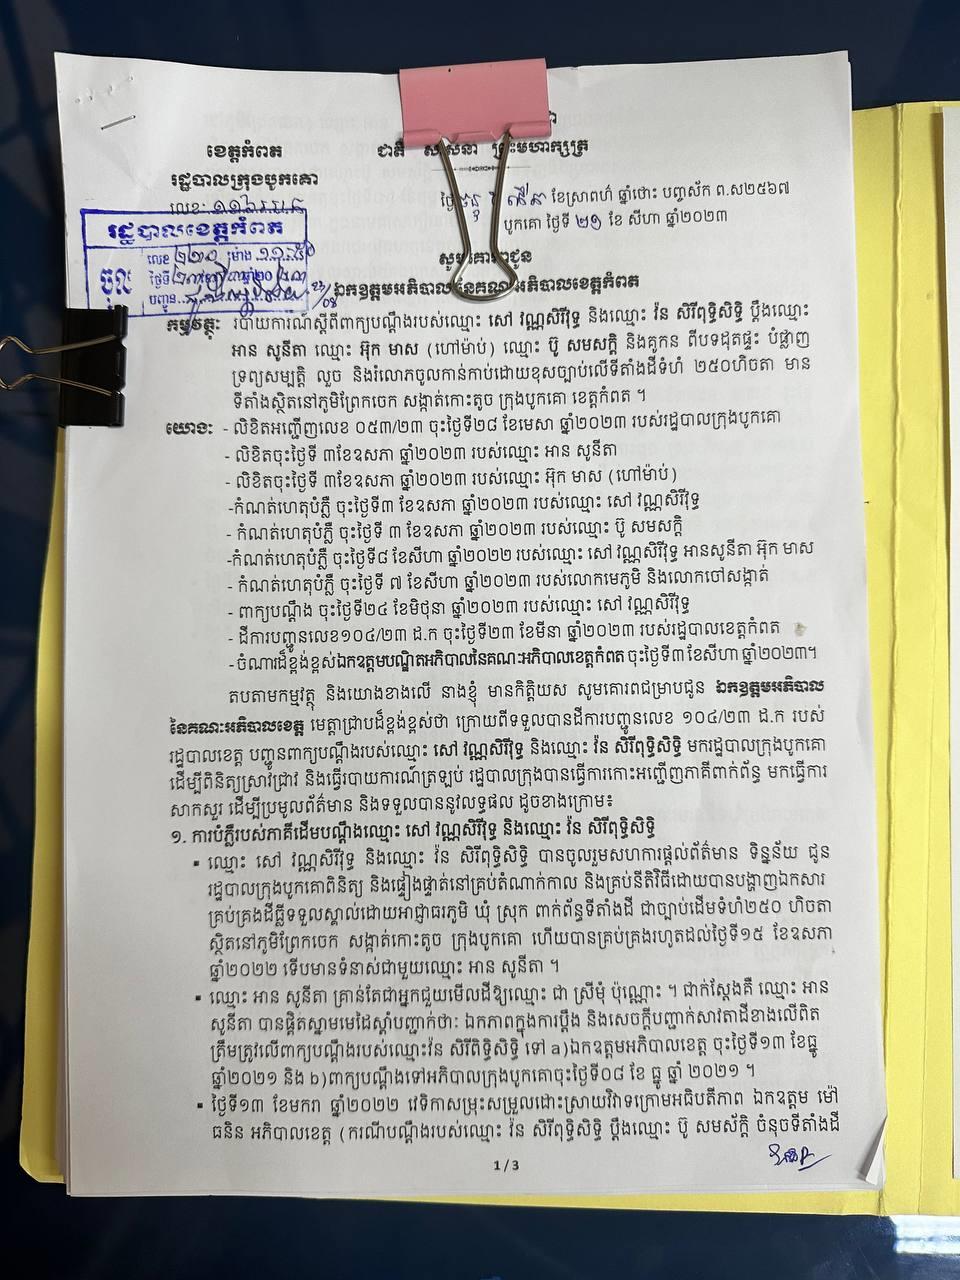 ខេត្តកំពត
ជាតិ សាសនា ព្រះមហាក្សត្រ
រដ្ឋបាលក្រុងបូកគោ
លេខ:
ខែស្រាពណ៍ ឆ្នាំថោះ បញ្ចស័ក ព.ស២៥៦៧
បូកគោ ថ្ងៃទី ២១ ខែ សីហា ឆ្នាំ២០២៣
រដ្ឋបាលខេត្តកំពត
ចូល
លេខ ២២០ ម៉ោង
ថ្ងៃទី
បញ្ជូន
សូមគោរពជូន
ឯកឧត្តមអភិបាល នៃគណៈអភិបាលខេត្តកំពត
កម្មវត្ថុ: របាយការណ៍ស្តីពីពាក្យបណ្តឹងរបស់ឈ្មោះ សៅ វណ្ណសិរីវុទ្ធ និងឈ្មោះ វ៉ន សិរីពុទ្ធិសិទ្ធិ ប្តឹងឈ្មោះ
អាន សូនីតា ឈ្មោះ អ៊ុក មាស (ហៅម៉ាប់) ឈ្មោះ ប៊ូ សមសក្តិ និងគូកន ពីបទដុតផ្ទះ បំផ្លាញ
ទ្រព្យសម្បត្តិ លួច និងរំលោភចូលកាន់កាប់ដោយខុសច្បាប់លើទីតាំងដីទំហំ ២៥០ហិចតា មាន
ទីតាំងស្ថិតនៅភូមិព្រែកចេក សង្កាត់កោះតូច ក្រុងបូកគោ ខេត្តកំពត ។
យោង: - លិខិតអញ្ជើញលេខ ០៥៣/២៣ ចុះថ្ងៃទី២៨ ខែមេសា ឆ្នាំ២០២៣ របស់រដ្ឋបាលក្រុងបូកគោ
- លិខិតចុះថ្ងៃទី ៣ខែឧសភា ឆ្នាំ២០២៣ របស់ឈ្មោះ អាន សូនីតា
- លិខិតចុះថ្ងៃទី ៣ខែឧសភា ឆ្នាំ២០២៣ របស់ឈ្មោះ អ៊ុក មាស (ហៅម៉ាប់)
-កំណត់ហេតុបំភ្លឺ ចុះថ្ងៃទី៣ ខែឧសភា ឆ្នាំ២០២៣ របស់ឈ្មោះ សៅ វណ្ណសិរីវុទ្ធ
- កំណត់ហេតុបំភ្លឺ ចុះថ្ងៃទី ៣ ខែឧសភា ឆ្នាំ២០២៣ របស់ឈ្មោះ ប៊ូ សមសក្តិ
-កំណត់ហេតុបំភ្លឺ ចុះថ្ងៃទី៨ ខែសីហា ឆ្នាំ២០២២ របស់ឈ្មោះ សៅ វណ្ណសិរីវុទ្ធ អានសូនីតា អ៊ុក មាស
- កំណត់ហេតុបំភ្លឺ ចុះថ្ងៃទី ៧ ខែសីហា ឆ្នាំ២០២៣ របស់លោកមេភូមិ និងលោកចៅសង្កាត់
- ពាក្យបណ្តឹង ចុះថ្ងៃទី២៤ ខែមិថុនា ឆ្នាំ២០២៣ របស់ឈ្មោះ សៅ វណ្ណសិរីវុទ្ធ
- ដីការបញ្ជូនលេខ១០៤/២៣ ដ.ក ចុះថ្ងៃទី២៣ ខែមីនា ឆ្នាំ២០២៣ របស់រដ្ឋបាលខេត្តកំពត
-ចំណារដ៏ខ្ពង់ខ្ពស់ឯកឧត្តមបណ្ឌិតអភិបាលនៃគណៈអភិបាលខេត្តកំពត ចុះថ្ងៃទី៣ ខែសីហា ឆ្នាំ២០២៣។
តបតាមកម្មវត្ថុ និងយោងខាងលើ នាងខ្ញុំ មានកិត្តិយស សូមគោរពជម្រាបជូន ឯកឧត្តមអភិបាល
នៃគណៈអភិបាលខេត្ត មេត្តាជ្រាបដ៏ខ្ពង់ខ្ពស់ថា ក្រោយពីទទួលបានដីការបញ្ជូនលេខ ១០៤/២៣ ដ.ក របស់
រដ្ឋបាលខេត្ត បញ្ជូនពាក្យបណ្តឹងរបស់ឈ្មោះ សៅ វណ្ណសិរីវុទ្ធ និងឈ្មោះ វ៉ន សិរីពុទ្ធិសិទ្ធិ មករដ្ឋបាលក្រុងបូកគោ
ដើម្បីពិនិត្យស្រាវជ្រាវ និងធ្វើរបាយការណ៍ត្រឡប់ រដ្ឋបាលក្រុងបានធ្វើការកោះអញ្ជើញភាគីពាក់ព័ន្ធ មកធ្វើការ
សាកសួរ ដើម្បីប្រមូលព័ត៌មាន និងទទួលបាននូវលទ្ធផល ដូចខាងក្រោម៖
១. ការបំភ្លឺរបស់ភាគីដើមបណ្តឹងឈ្មោះ សៅ វណ្ណសិរីវុទ្ធ និងឈ្មោះ វ៉ន សិរីពុទ្ធិសិទ្ធិ
▪ ឈ្មោះ សៅ វណ្ណសិរីវុទ្ធ និងឈ្មោះ វ៉ន សិរីពុទ្ធិសិទ្ធិ បានចូលរួមសហការផ្តល់ព័ត៌មាន ទិន្នន័យ ជូន
រដ្ឋបាលក្រុងបូកគោពិនិត្យ និងផ្ទៀងផ្ទាត់នៅគ្រប់តំណាក់កាល និងគ្រប់នីតិវិធីដោយបានបង្ហាញឯកសារ
គ្រប់គ្រងដីធ្លីទទួលស្គាល់ដោយអាជ្ញាធរភូមិ ឃុំ ស្រុក ពាក់ព័ន្ធទីតាំងដី ជាច្បាប់ដើមទំហំ២៥០ ហិចតា
ស្ថិតនៅភូមិព្រែកចេក សង្កាត់កោះតូច ក្រុងបូកគោ ហើយបានគ្រប់គ្រងរហូតដល់ថ្ងៃទី១៥ ខែឧសភា
ឆ្នាំ២០២២ ទើបមានទំនាស់ជាមួយឈ្មោះ អាន សូនីតា ។
▪ ឈ្មោះ អាន សូនីតា គ្រាន់តែជាអ្នកជួយមើលដីឱ្យឈ្មោះ ជា ស្រីមុំ ប៉ុណ្ណោះ ។ ជាក់ស្តែងគឺ ឈ្មោះ អាន
សូនីតា បានផ្តិតស្នាមមេដៃស្តាំបញ្ជាក់ថា: ឯកភាពក្នុងការប្តឹង និងសេចក្តីបញ្ជាក់សាវតាដីខាងលើពិត
ត្រឹមត្រូវលើពាក្យបណ្តឹងរបស់ឈ្មោះវ៉ន សិរីពិទ្ធិសិទ្ធិ ទៅ a)ឯកឧត្តមអភិបាលខេត្ត ចុះថ្ងៃទី១៣ ខែធ្នូ
ឆ្នាំ២០២១ និង b)ពាក្យបណ្តឹងទៅអភិបាលក្រុងបូកគោចុះថ្ងៃទី០៨ ខែ ធ្នូ ឆ្នាំ ២០២១ ។
▪ ថ្ងៃទី១៣ ខែមករា ឆ្នាំ២០២២ វេទិកាសម្រុះសម្រួលដោះស្រាយវិវាទក្រោមអធិបតីភាព ឯកឧត្តម ម៉ៅ
ធនិន អភិបាលខេត្ត (ករណីបណ្តឹងរបស់ឈ្មោះ វ៉ន សិរីពុទ្ធិសិទ្ធិ ប្តឹងឈ្មោះ ប៊ូ សមស័ក្តិ ចំនុចទីតាំងដី
1 / 3